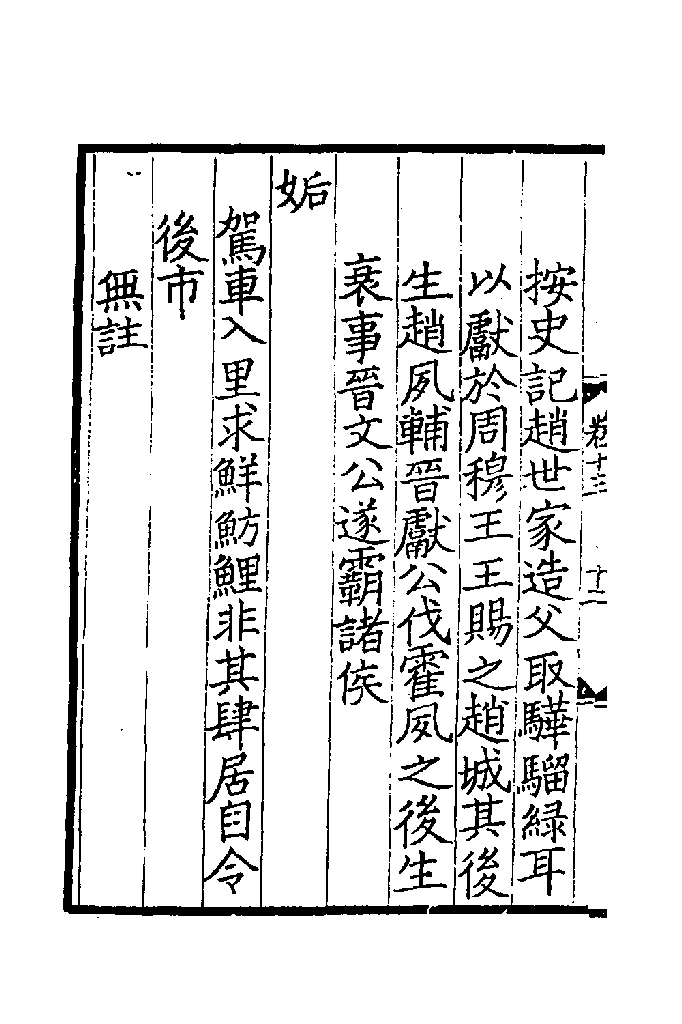 卷十三
十二
按史記趙世家造父取驊騮緑耳
以獻於周穆王王賜之趙城其後
生趙夙輔晉獻公伐霍夙之後生
衰事晉文公遂霸諸侯
姤
駕車入里求鮮魴鯉非其肆居自令
後市
無註